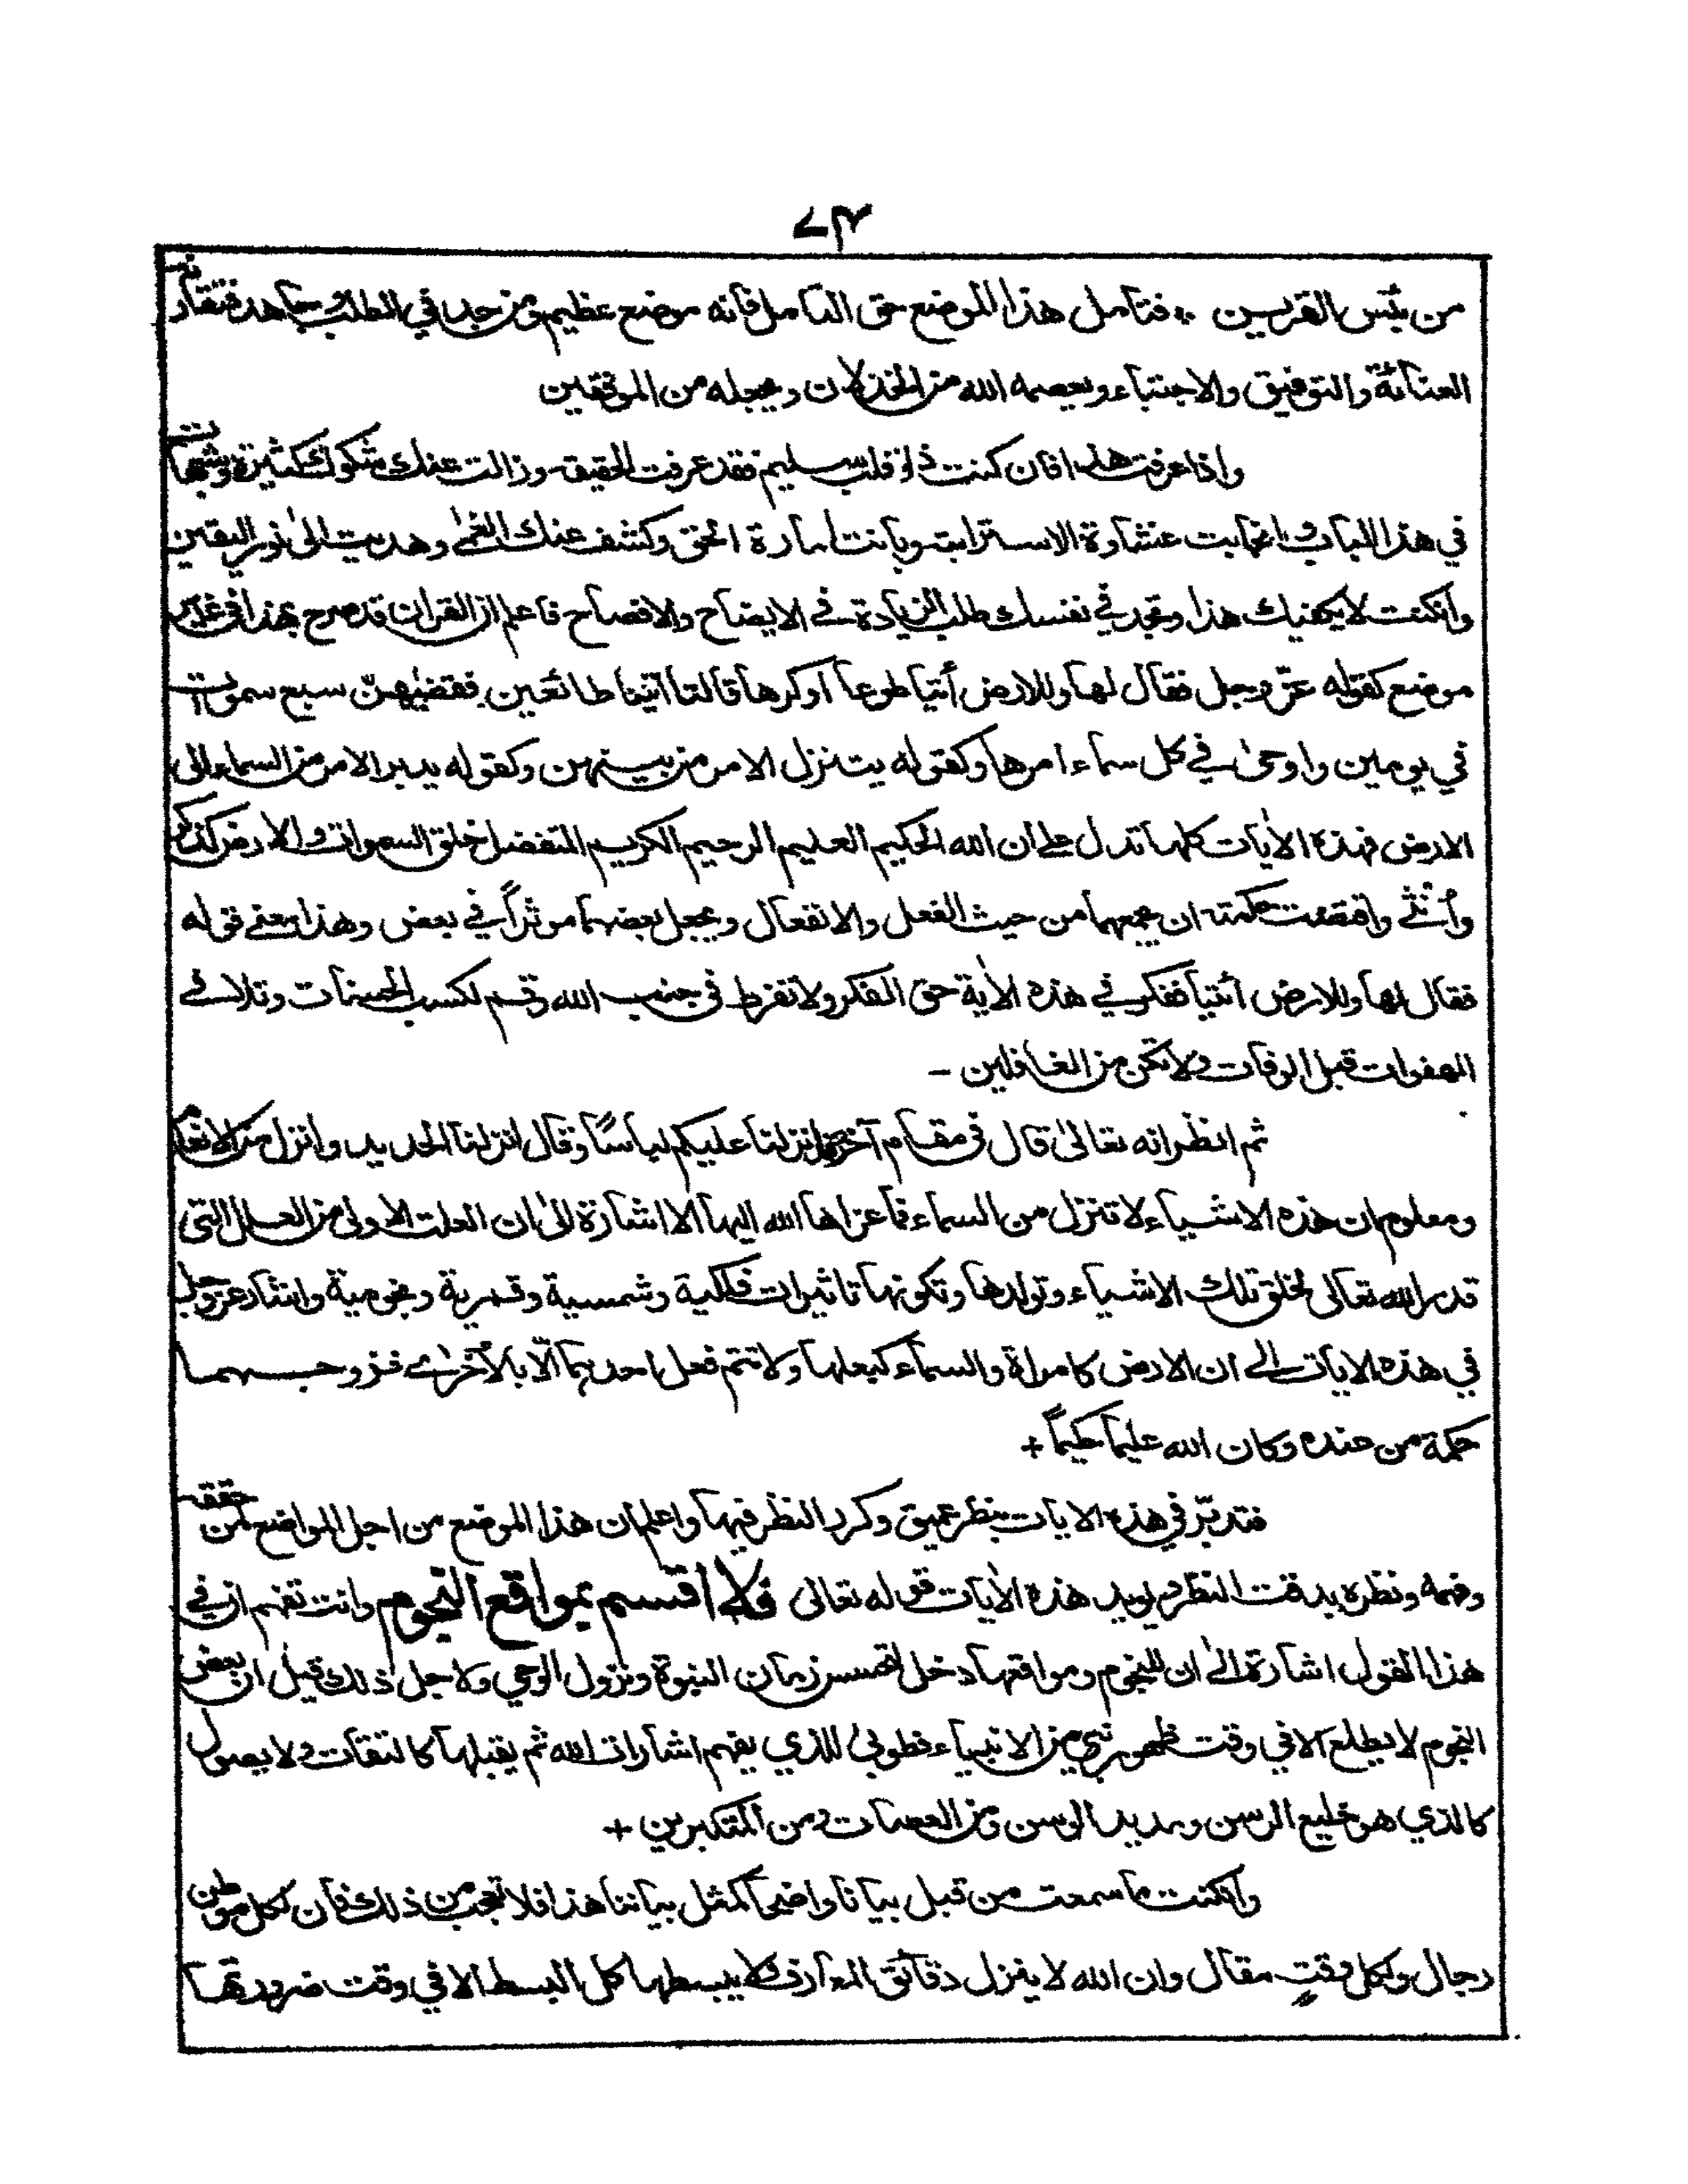 ٧٣
من بئس القريسين ؞ فتأمل هذا الموضع حق التأمل فانه موضع عظيم ومن جد في الطلب جاهد فتقاربه
العناية والتوفيق والاجتباء ويعصمه الله من الخذلان ويجعله من الموفقين
واذا عرفت هذا فان كنت ذا قلب سليم فقد عرفت الحقيقة وزالت عنك شكوك كثيرة وشبهات
في هذا الباب وانجابت غشاوة الاسترابة وبانت امارة الحق وكشف عنك الغمى وهديت الى نور اليقين
وان كنت لا يكفيك هذا وتجد في نفسك طلب الزيادة في الايضاح والافصاح فاعلم ان القران قد صرح بهذا في غير
موضع كقوله عزّ وجل فقال لها وللارض أئتيا طوعاً اوكرها قالتا اتينا طائعين فقضٰهن سبع سمٰوات
في يومين واوحىٰ في كل سماء امرها وكقوله يتنزل الامر من بينهن وكقوله يدبر الامر من السماء الى
الارض فهذه الاٰيات كلها تدل على ان الله الحكيم العليم الرحيم الكريم المتفضل خلق السموات والارض كذكر
وأنثى واقتضت حكمته ان يجمعهما من حيث الفعل والانفعال ويجعل بعضهما موثراً في بعض وهذا معنى قوله
فقال لها وللارض أئتيا ففكر في هذه الاٰية حق الفكر ولا تفرط في جنب الله وقم لكسب الحسنات وتلافي
الهفوات قبل الوفات ولا تكن من الغافلين –
ثم انظر انه تعالىٰ قال في مقام آخر انزلنا عليكم لباسًا وقال انزلنا الحديد وانزل من الانعام
ومعلوم ان هذه الاشياء لا تنزل من السماء فما عزاها الله اليها الا اشارة الىٰ ان العلت الاولى من العلل التي
قدر الله تعالى لخلق تلك الاشياء وتولدها وتكونها تاثيرات فلكية وشمسية وقمرية ونجومية واشار عز وجل
في هذه الايات الى ان الارض كامراة والسماء كبعلها ولا تتم فعل احدىهما الّا بالأخرىٰ فزوجهما
حكمة من عنده وكان الله عليما حكيماً +
فتدبّر في هذه الايات بنظر عميق وكرر النظر فيها واعلم ان هذا الموضع من اجل المواضع لمن حققه
وفهمه ونظره بدقت النظر ويويد هذه الاٰيات قوله تعالى فلا اقسم بمواقع النجوم وانت تفهم ان في
هذا القول اشارة الىٰ ان للنجوم ومواقعها دخل لتحسس زمان النبوة ونزول الوحي ولاجل ذلك قيل ان بعض
النجوم لا يطلع الا في وقت ظهور نبي من الانبياء فطوبىٰ للذي يفهم اشارات الله ثم يقبلها كالتقات ولا يصول
كالذي هو خليع الرسن ومديد الوسن ومن العصات ومن المتكبرين +
وان كنت ما سمعت من قبل بيانا واضحا كمثل بياننا هذا فلا تعجب من ذلك فان لكل موطن
رجال ولكل وقتٍ مقال وان الله لا ينزل دقائق المعارف ولا يبسطها كل البسط الا في وقت ضرورتها